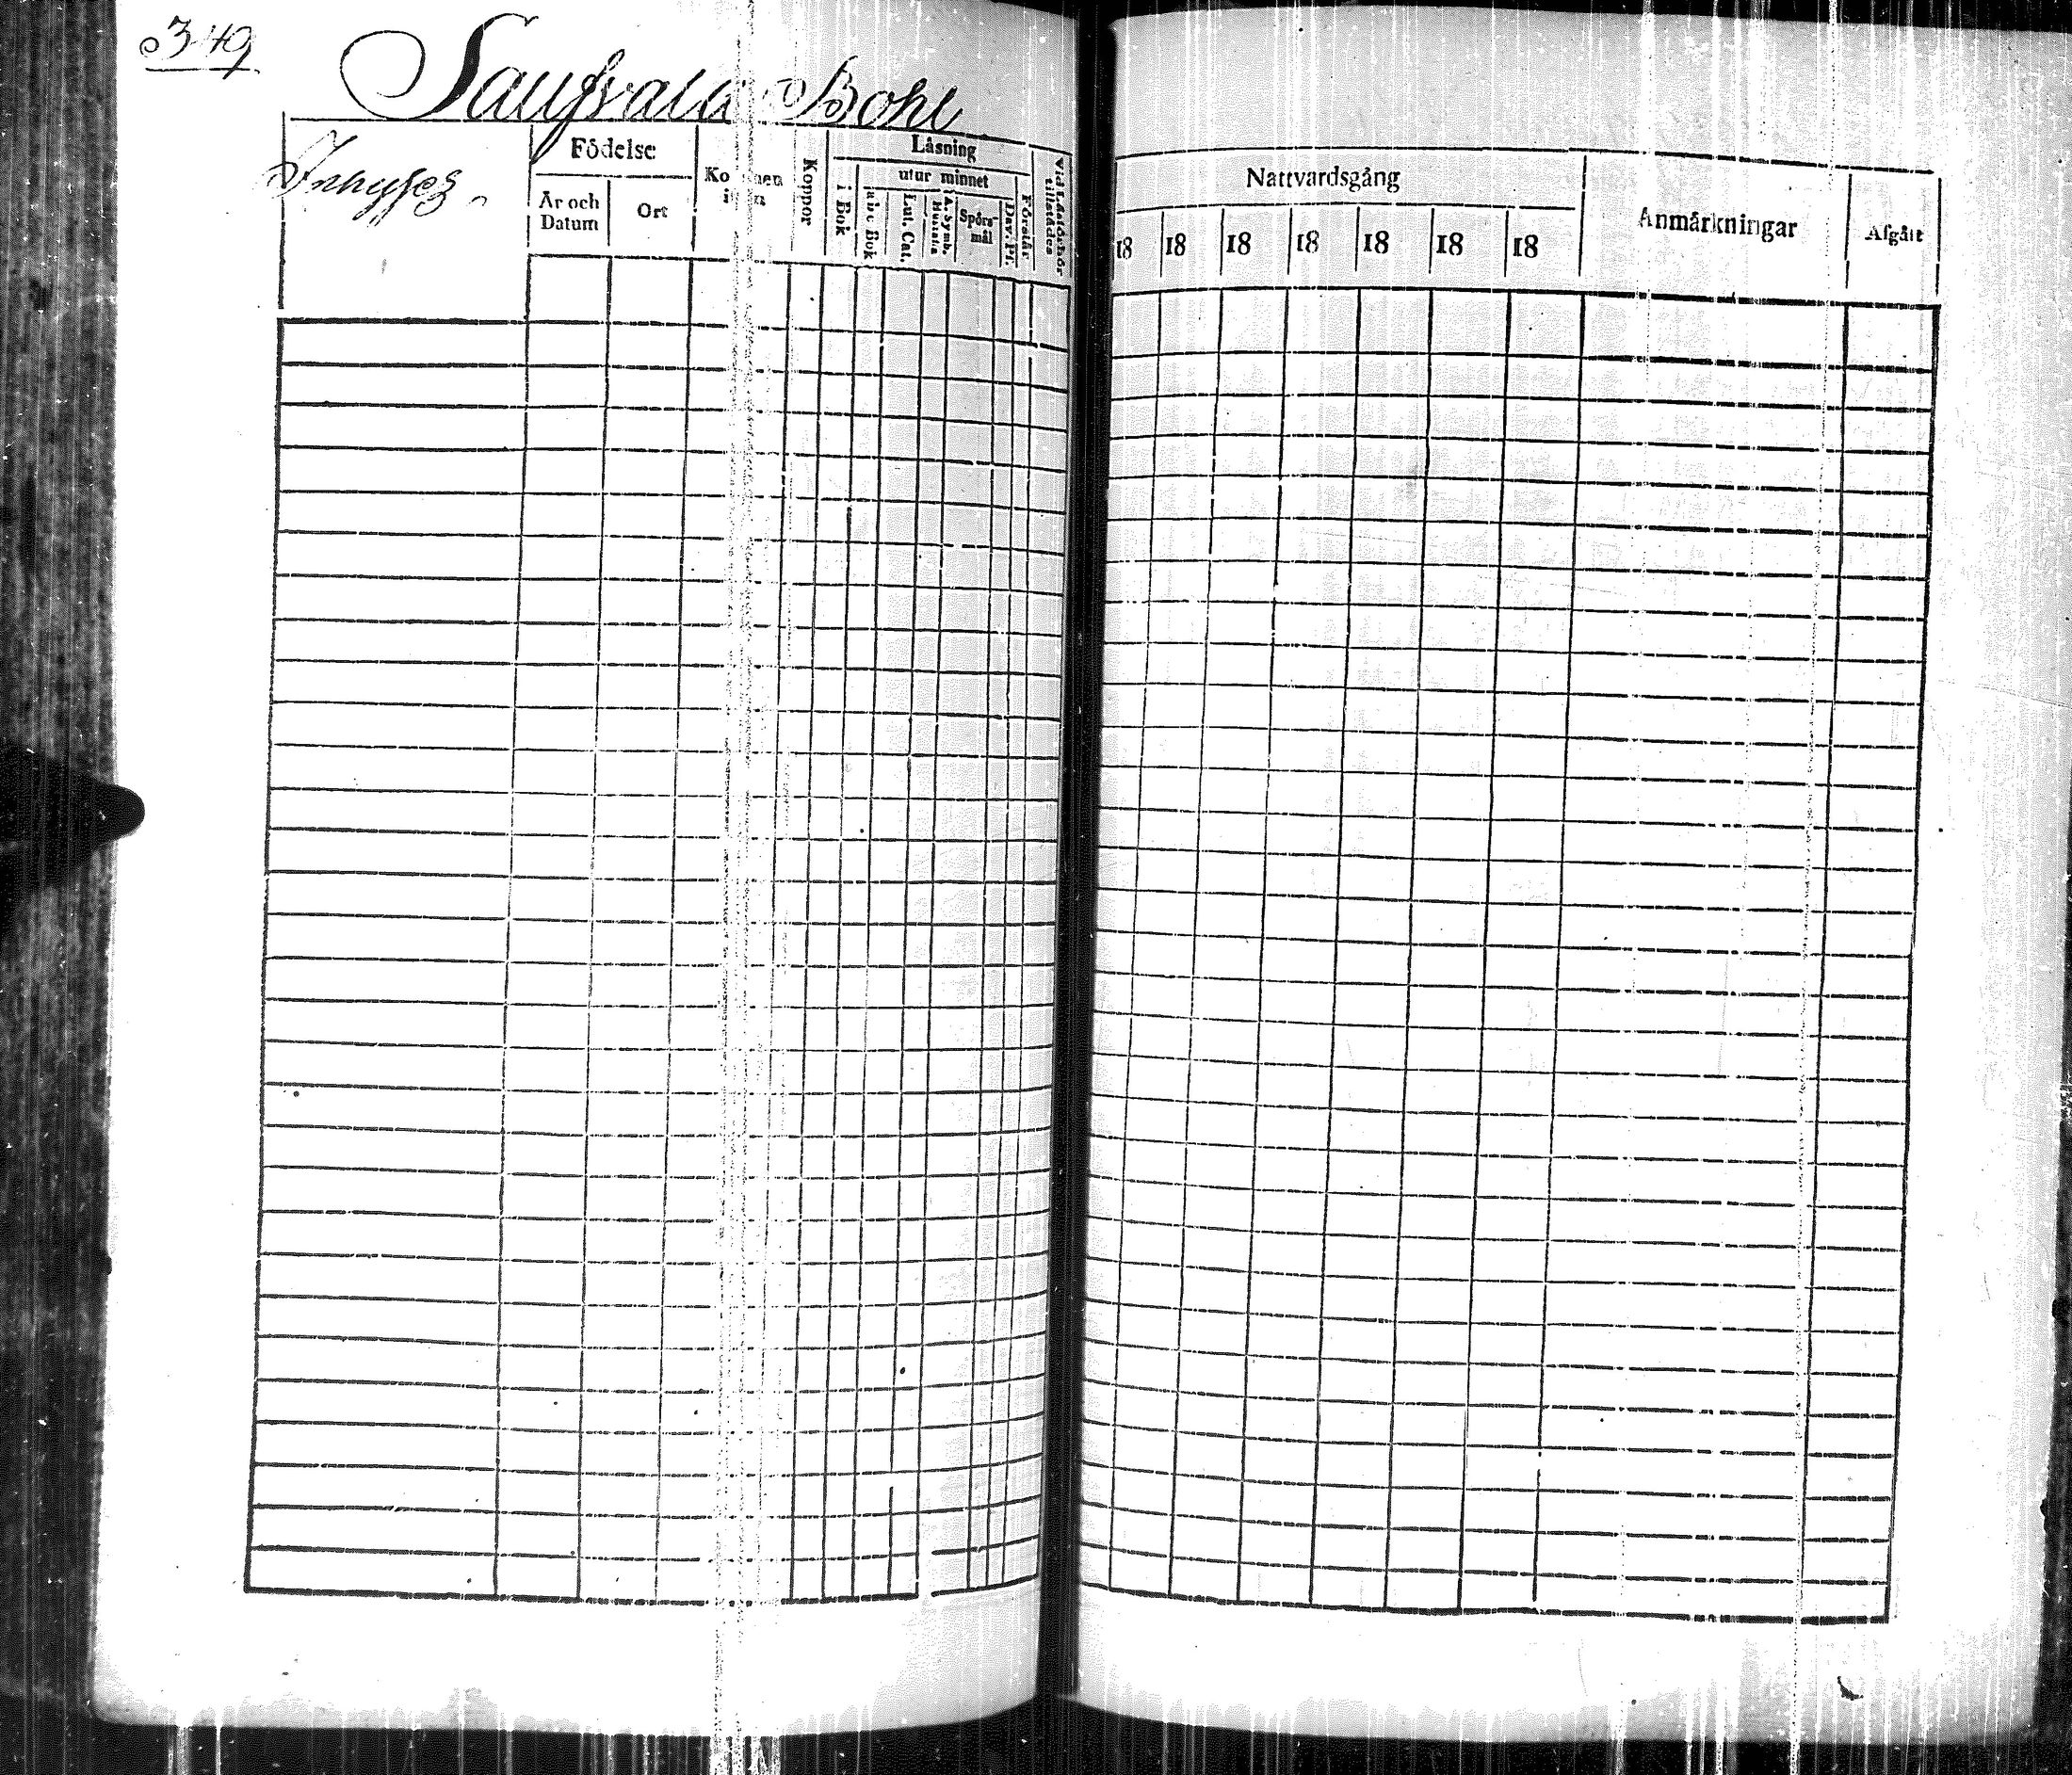 349
Saufsala Bohl
Inhyses
Födelse
År och Datum
Ort
Koppor
Läsning
i Bok
utur minnet
abc Bok
Lut. Cat.
A. Symb.
Hustafla
Spörsmål
Dav. Ps.
Förstår
Vid Läsförhör tillstädes
Nattvardsgång
18 18 18 18 18 18 18
Anmärkningar
Afgått